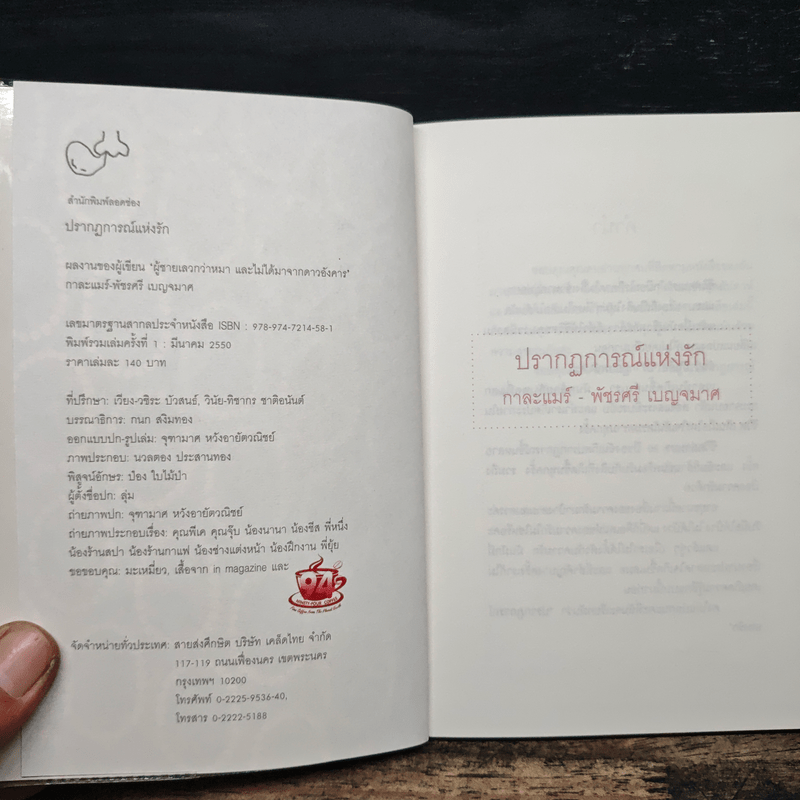 สำนักพิมพ์ลอดช่อง
ปรากฏการณ์แห่งรัก
ผลงานของผู้เขียน "ผู้ชายเลวกว่าหมา และไม่ได้มาจากดาวอังคาร"
กาละแมร์-พัชรศรี เบญจมาศ
เลขมาตรฐานสากลประจำหนังสือ ISBN : 978-974-7214-58-1
พิมพ์รวมเล่มครั้งที่ 1 : มีนาคม 2550
ราคาเล่มละ 140 บาท
ที่ปรึกษา: เวียง-วชิระ บัวสนธ์, วินัย-ทิชากร ชาติอนันต์
บรรณาธิการ: กนก สงิมทอง
ออกแบบปก-รูปเล่ม: จุฑามาศ หวังอายัตวณิชย์
ภาพประกอบ: นวลตอง ประสานทอง
พิสูจน์อักษร: ป๋อง ใบไม้ป่า
ผู้ตั้งชื่อปก: ลุ่ม
ถ่ายภาพปก: จุฑามาศ หวังอายัตวณิชย์
ถ่ายภาพประกอบเรื่อง: คุณพีเค คุณจุ๊บ น้องนานา น้องชีส พี่หนึ่ง
น้องร้านสปา น้องร้านกาแฟ น้องช่างแต่งหน้า น้องฝึกงาน พี่ยุ้ย
ขอขอบคุณ: มะเหมี่ยว, เสื้อจาก in magazine และ
94°
NINETY FOUR COFFEE
จัดจำหน่ายทั่วประเทศ: สายส่งศึกษิต บริษัท เคล็ดไทย จำกัด
117-119 ถนนเฟื่องนคร เขตพระนคร
กรุงเทพฯ 10200
โทรศัพท์ 0-2225-9536-40,
โทรสาร 0-2222-5188
ปรากฏการณ์แห่งรัก
กาละแมร์ - พัชรศรี เบญจมาศ